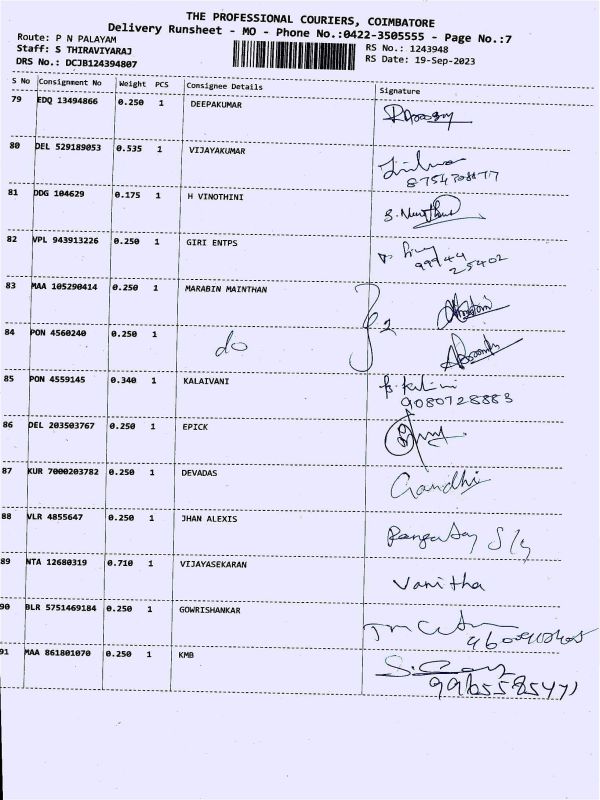 THE PROFESSIONAL COURIERS, COIMBATORE
Delivery Runsheet - MO - Phone No.:0422-3505555 - Page No.:7
Route: P N PALAYAM
Staff: S THIRAVIYARAJ
DRS No.: DCJB124394807
RS No.: 1243948
RS Date: 19-Sep-2023
S No Consignment No Weight PCS Consignee Details Signature
79 EDQ 13494866 0.250 1 DEEPAKUMAR
80 DEL 529189053 0.535 1 VIJAYAKUMAR
81 DDG 104629 0.175 1 H VINOTHINI
82 VPL 943913226 0.250 1 GIRI ENTPS
99944
25402
83 MAA 105290414 0.250 1 MARABIN MAINTHAN
84 PON 4560240 0.250 1 do
85 PON 4559145 0.340 1 KALAIVANI
9080728883
86 DEL 203503767 0.250 1 EPICK
87 KUR 7000203782 0.250 1 DEVADAS Gandhi
88 VLR 4855647 0.250 1 JHAN ALEXIS
89 NTA 12680319 0.710 1 VIJAYASEKARAN Vanitha
90 BLR 5751469184 0.250 1 GOWRISHANKAR
91 MAA 861801070 0.250 1 KMB